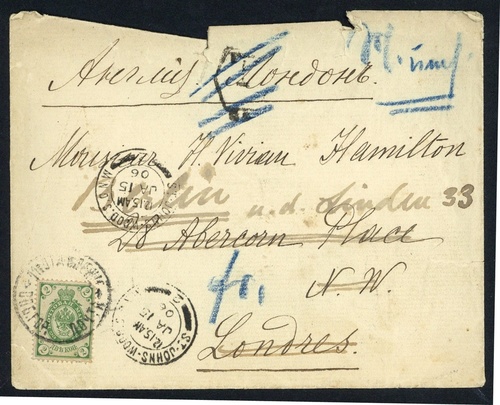 Англія Лондонъ.
Monsieur H. Vivian Hamilton
Berlin
u. d. Linden 33
28 Abercorn Place
N. W.
Londres.
ST. JOHNS-WOOD S.O. N.W.
12.15 AM
JA 15
06
ST-JOHNS-WOOD
12.15 AM
JA 15
06
2